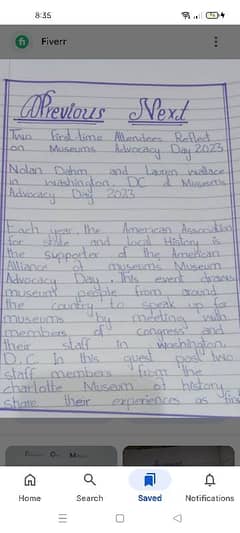 8:35
Fiverr
Previous Next
Two First time Attendees Reflect
on Museums Advocacy Day 2023
Nolan Dahm, and Lauren wallace
in washington, DC d Museums
Advocacy Day 2023
Each year, the American Association
for state and local History is
the supporter of the American
Alliance of museums Museum
Advocacy Day. This event draws
museum people from around
the country to speak up for
museums by meeting with
members of congress and
their staff in washington,
D.C In this guest post two
staff members from the
charlotte Museum of history
share their experiences as first
Home
Search
Saved
Notifications